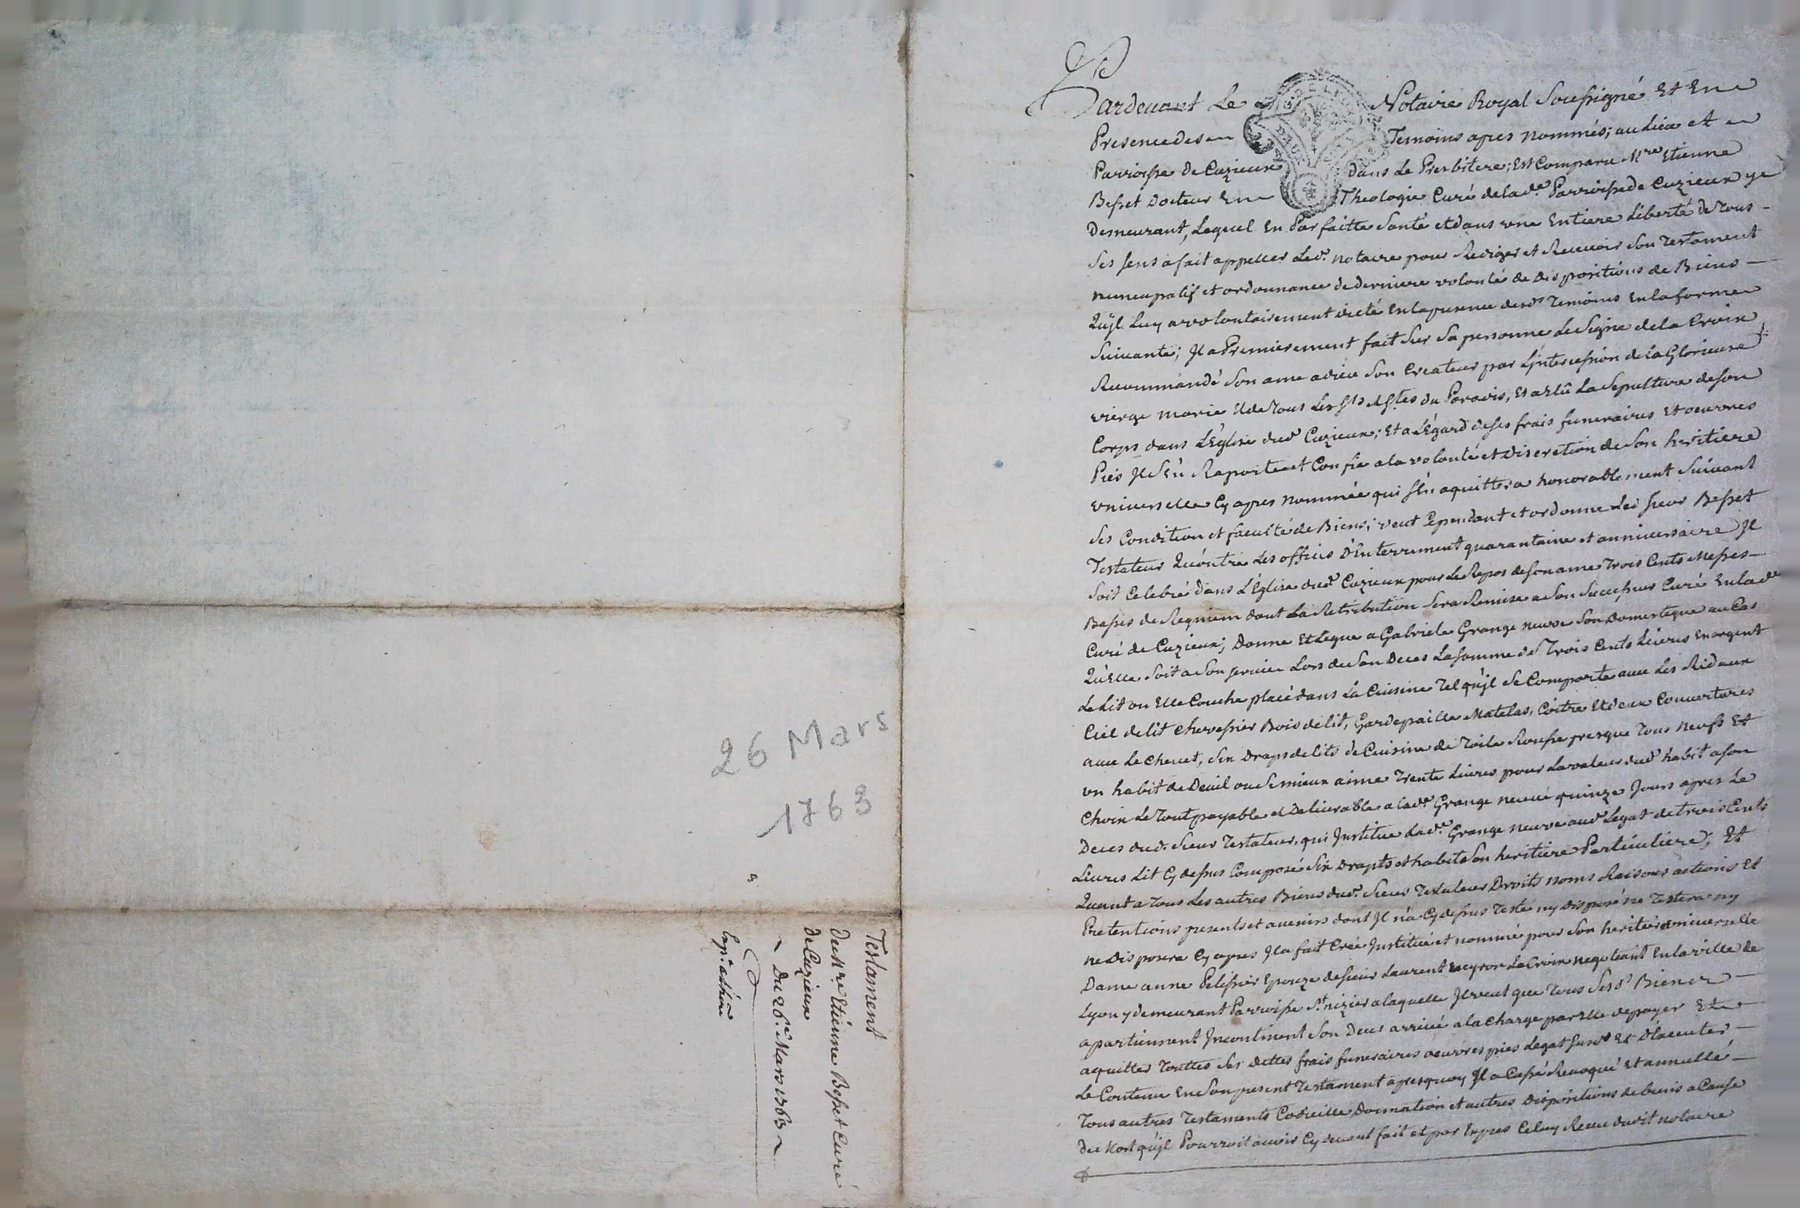 26 Mars
1763
Testament
de Mre Etienne Besset Curé
de Cuzieux
Du 26e Mars 1763
Pardevant Le Notaire Royal Soussigné Et En
Presence des Temoins apres nommés; au lieu et
Parroisse de Cuzieux dans Le Presbitere; Est Comparu Mre Etienne
Besset Docteur En Theologie Curé de lade Parroisse de Cuzieux y
Demeurant, Lequel En Parfaitte Santé et dans une Entiere Liberté de Tous
Ses sens a fait appeller Led. notaire pour Rediger et Recevoir Son Testament
nuncupatif et ordonnance de derniere volonté de Dispositions de Biens
Quil Luy a volontairement dicté En la presence desds Temoins En la forme
Suivante; Il a Premierement fait Sur Sa personne Le Signe de la Croix
Recommandé Son ame a dieu Son Createur par L'intercession de la Glorieuse
vierge marie Et de Tous Les Sts & Stes du Paradis, Et a Elû La Sepulture de Son
Corps dans L'Eglise dud Cuzieux; Et a L'Egard de Ses frais funeraires Et oeuvres
Pies Il S'En Raporte et Confie a la volonté et Discretion de Son heritiere
universelle Cy apres Nommée qui S'En aquittera honorablement Suivant
Ses Condition et faculté de Biens; veut Cependant et ordonne Led Sieur Besset
Testateur Qu'outre Les offices D'Enterrement quarantaine et anniversaire Il
Soit Celebré dans L'Eglise dud Cuzieux pour Le Repos de Son ame Trois Cents Messes
Basses de Requiem dont La Retribution Sera Remise a Son Successeur Curé En lade
Curé de Cuzieux; Donne Et Legue a Gabriele Grange neuve Son Domestique au Cas
Qu'Elle Soit a Son Service Lors de Son Deces La Somme de Trois Cents Livres En argent
Le Lit ou Elle Couche placé dans La Cuisine Tel qu'il Se Comporte avec Les Rideaux
Ciel de lit Chevessier Bois de lit, Gardepaille Matelas, Coitre Et deux Couvertures
avec Le Chevet, Six Draps de lits de Cuisine de Toile Rousse presque Tous neufs Et
un habit de Deuil ou Si mieux aime Trente Livres pour La valeur dud habit a Son
Choix Le Tout payable et Delivrable a lade Grange neuve quinze Jours apres Le
Deces dud. Sieur Testateur, qui Institue Lade Grange neuve aud Legat de trois Cents
Livres Lit Cy dessus Composé Six Drapts et habit Son heritiere Particuliere; Et
Quant a Tous Les autres Biens dud Sieur Testateur Droits noms Raisons actions Et
Pretentions presents et avenirs dont Il n'a Cy dessus Testé ny Disposé ne Testera ny
ne Disposera Cy apres Il a fait Creé Institué et nommé pour Son heritiere universelle
Dame anne Pelissier Epouze de Sieur Laurent Lacroix negotiant En la ville de
Lyon y demeurant Parroisse St nizier a laquelle Il veut que Tous Sesd Biens
apartiennent Incontinent Son Deces arrivé a la Charge par Elle de payer Et
aquitter Touttes Ses dettes frais funeraires oeuvres pies Legat Susd Et D'Executer
Le Contenu En Son present Testament apres quoy Il a Cassé Revoqué Et annullé
Tous autres Testaments Codicille Donnation et autres Dispositions de biens a Cause
de Mort qu'il Pourroit avoir Cy devant fait et par Expres Celuy Recu dudit notaire